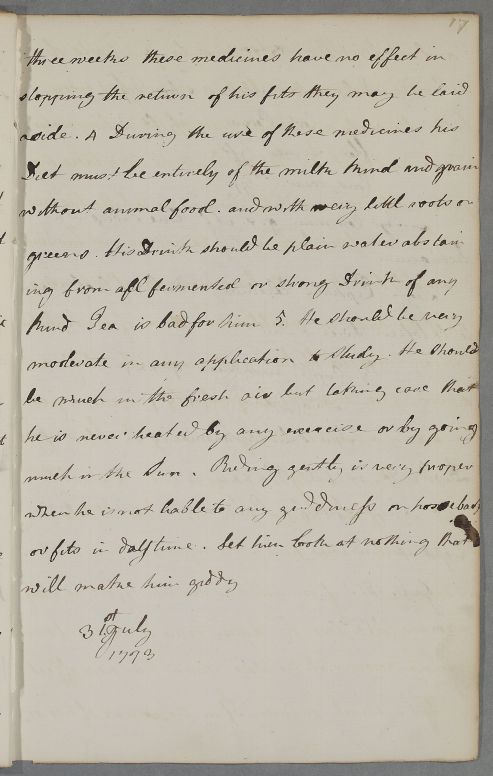 17
three weeks these medicines have no effect in
stopping the return of his fits they may be laid
aside. 4 During the use of these medicines his
Diet must be entirely of the milk kind and grain
without animal food. and with very little roots or
greens. His Drink should be plain water abstain
ing from all fermented or strong Drink of any
kind Tea is bad for him 5. He should be very
moderate in any application to study. He should
be much in the fresh air but taking care that
he is never heated by any exercise or by going
much in the Sun. Riding gently is very proper
when he is not liable to any giddiness on horseback
or fits in daytime. Let him look at nothing that
will make him giddy
31st July
1793